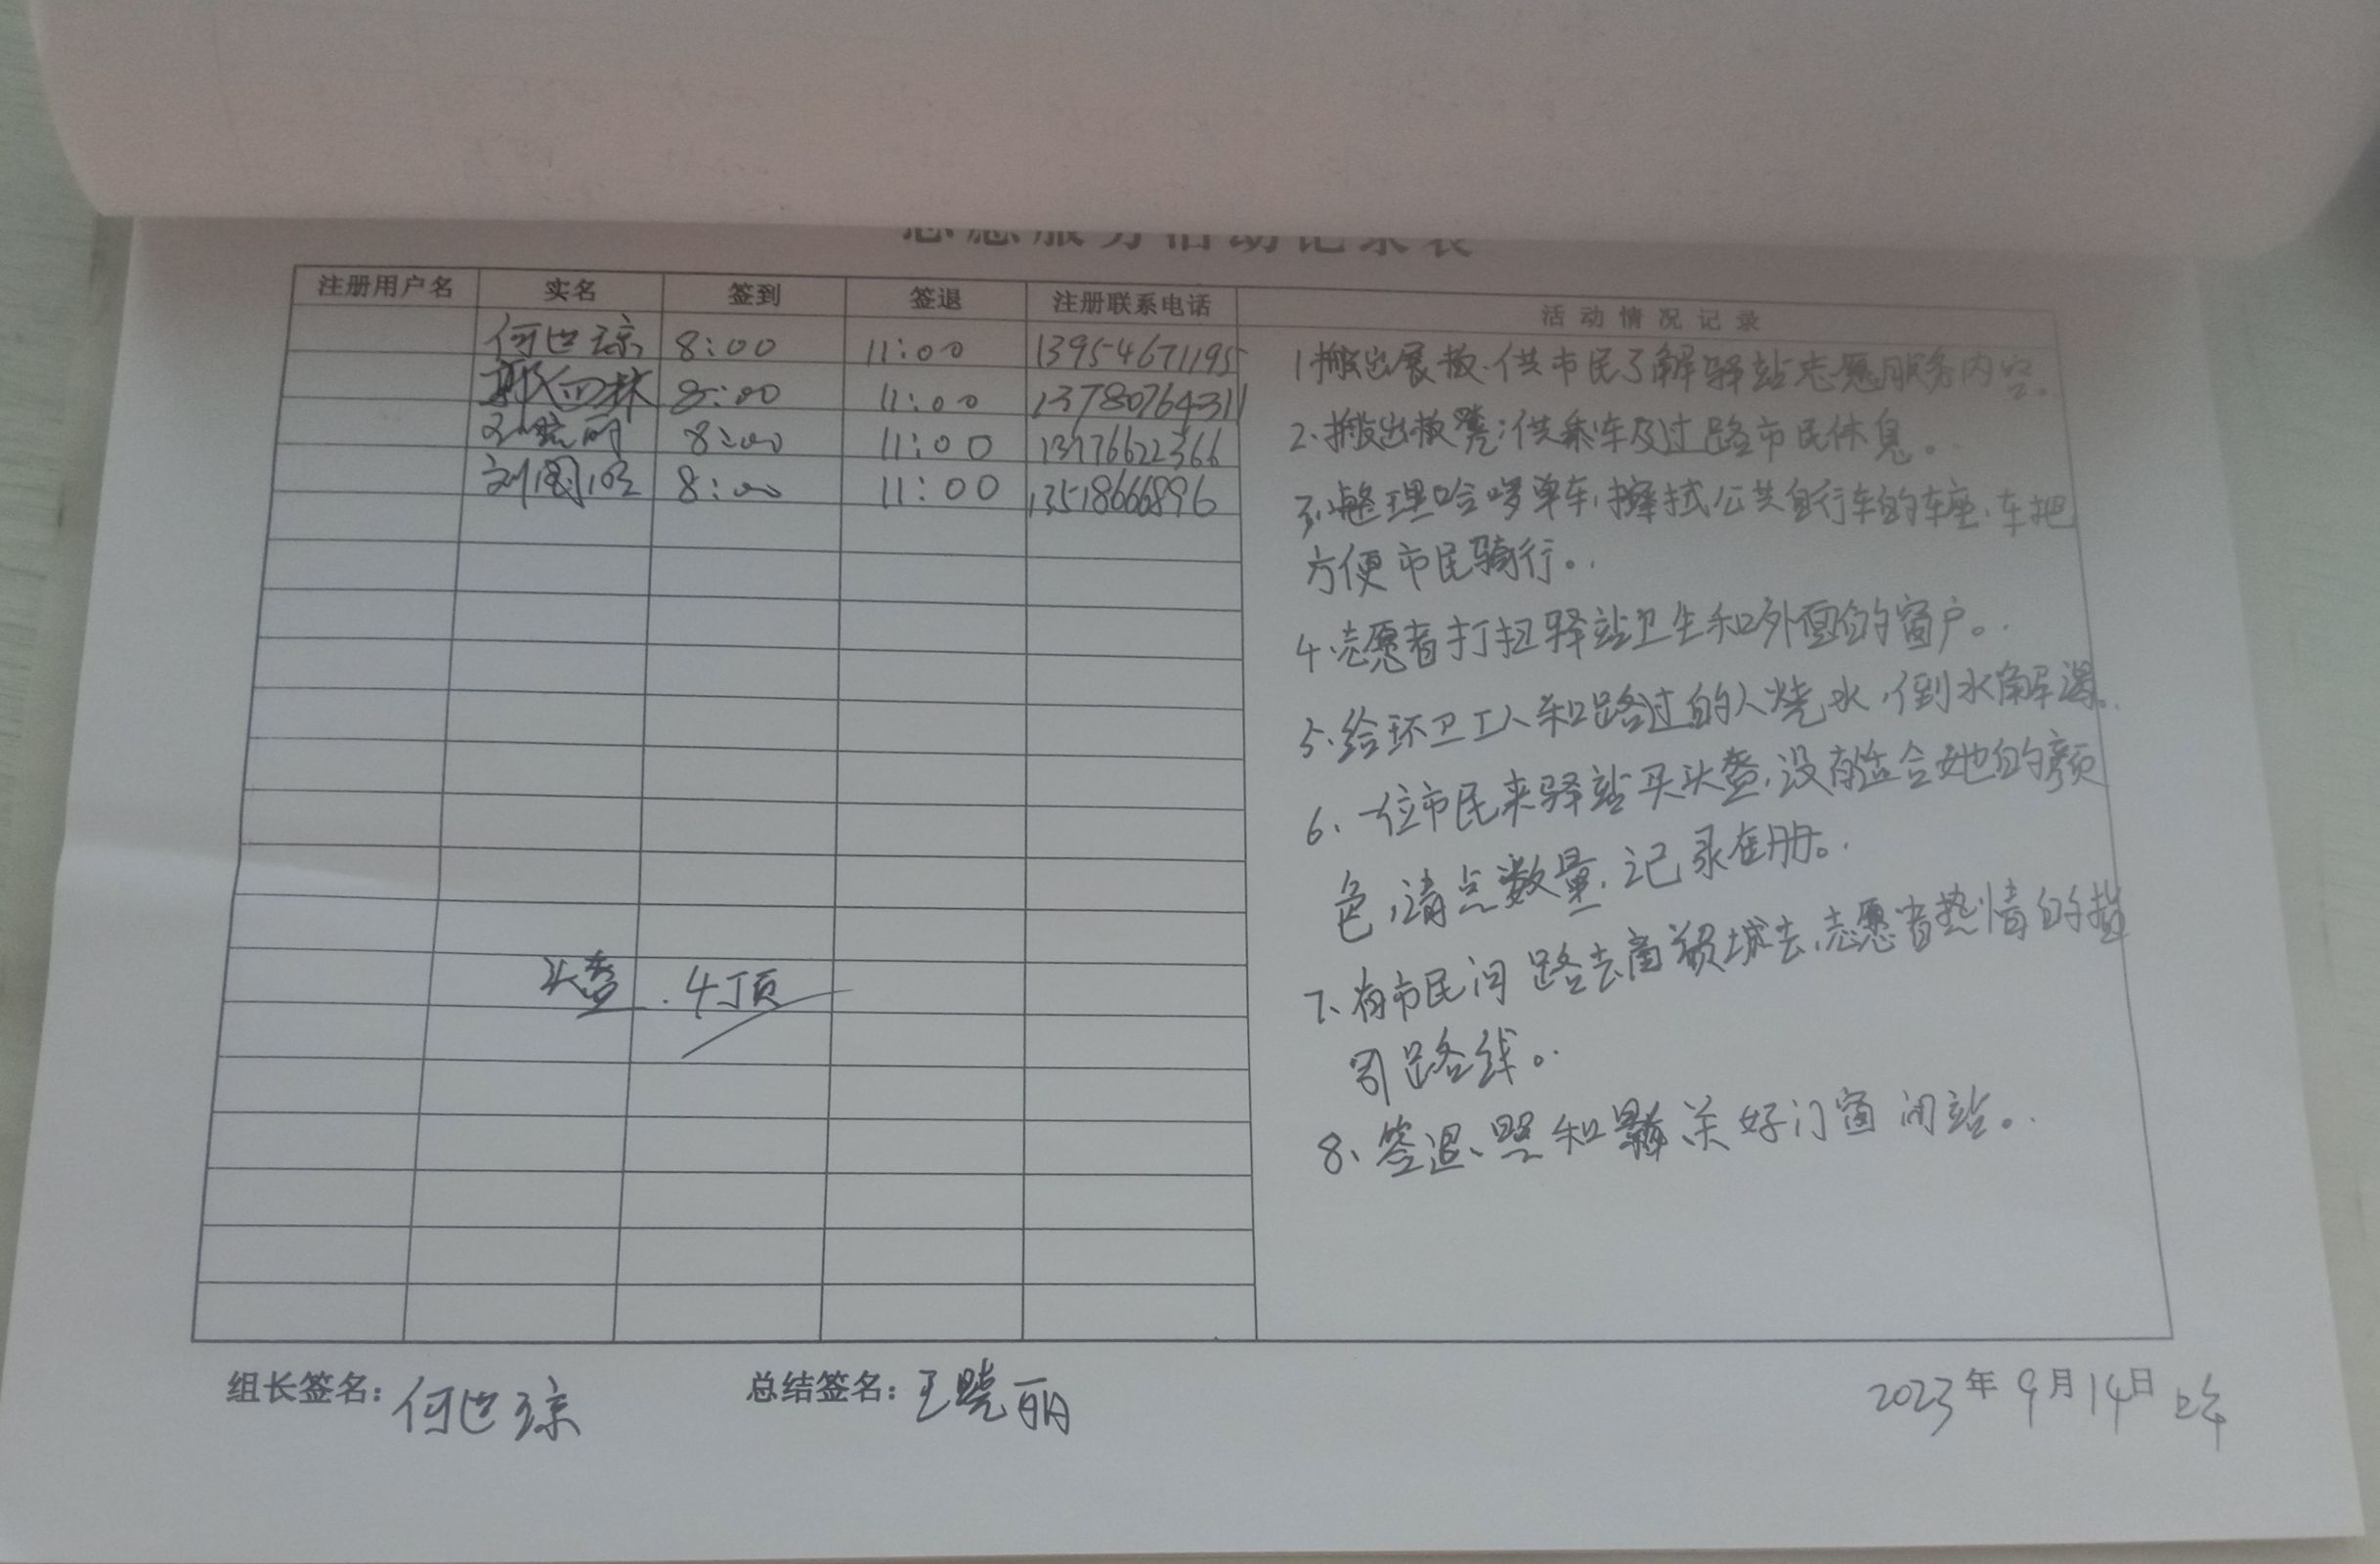 志愿服务活动记录表
注册用户名 实名 签到 签退 注册联系电话 活动情况记录
何世琼 8:00 11:00 13954671195
8:00 11:00 13780764311
8:00 11:00 13176622366
8:00 11:00 13518666896
1.搬出展板.供市民了解驿站志愿服务内容。
2.搬出板凳;供乘车及过路市民休息。
3.整理哈啰单车,擦拭公共自行车的车座、车把
方便市民骑行。
4.志愿者打扫驿站卫生和外面的窗户。
5.给环卫工人和路过的人烧水,倒水解渴。
6、一位市民来驿站买头盔,没有适合她的颜
色,清点数量,记录在册。
7、有市民问路去商贸城去,志愿者热情的指
引路线。
8、签退、照和 关好门窗闭站。
头盔.4顶
组长签名:何世琼 总结签名:王晓丽 2023年9月14日上午